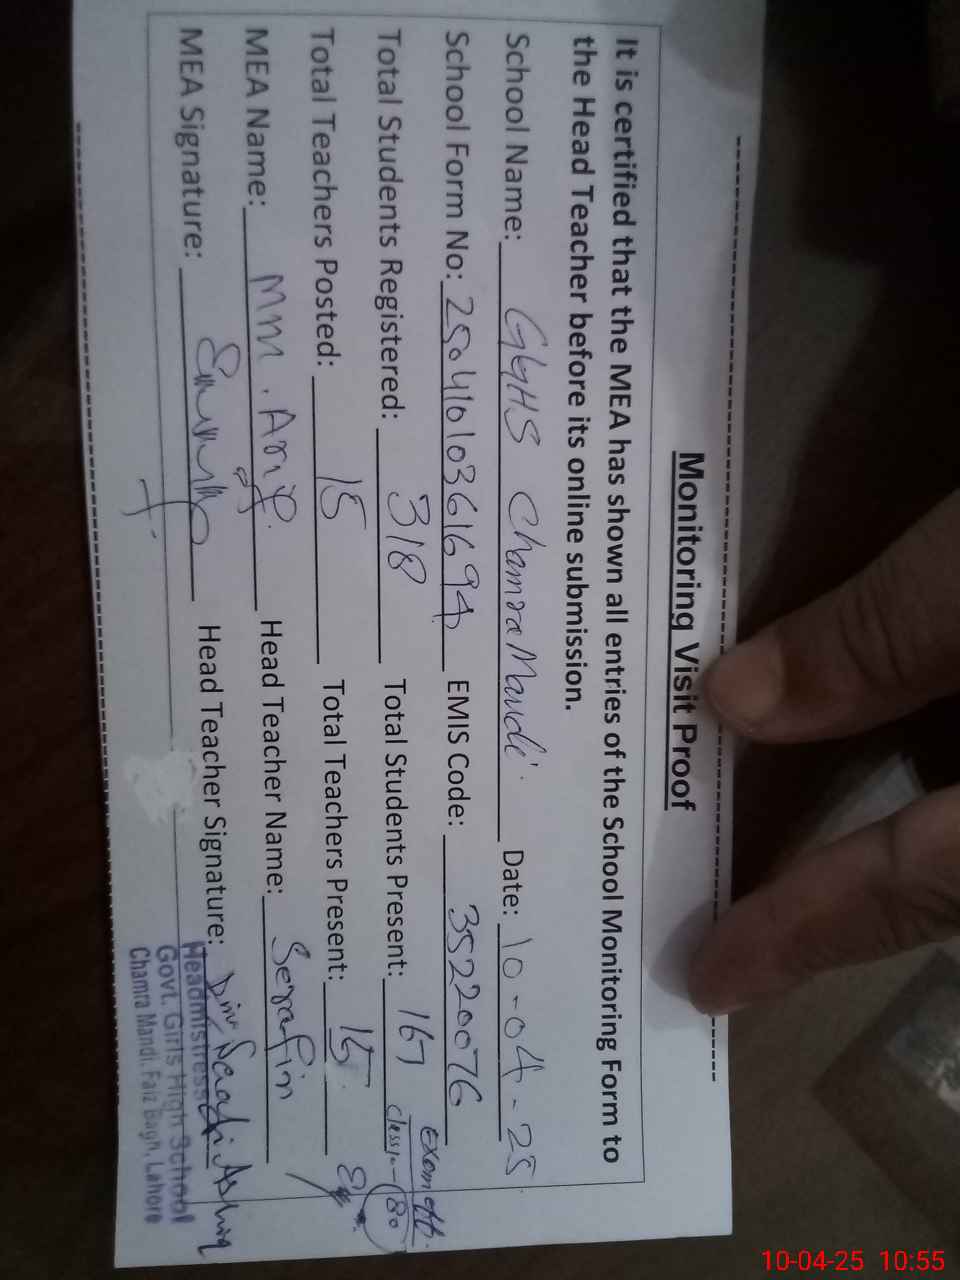 Monitoring Visit Proof
It is certified that the MEA has shown all entries of the School Monitoring Form to
the Head Teacher before its online submission.
School Name: GGHS Chamra Mandi. Date: 10-04-25
School Form No: 25041010361694 EMIS Code: 35220076
Total Students Registered: 318 Total Students Present: 167 Exam
class 80
Total Teachers Posted: 15 Total Teachers Present: 15
MEA Name: MM. Arif. Head Teacher Name:
MEA Signature: Head Teacher Signature:
Headmistress
Govt. Girls High School
Chamra Mandi, Faiz Bagh, Lahore
10-04-25 10:55